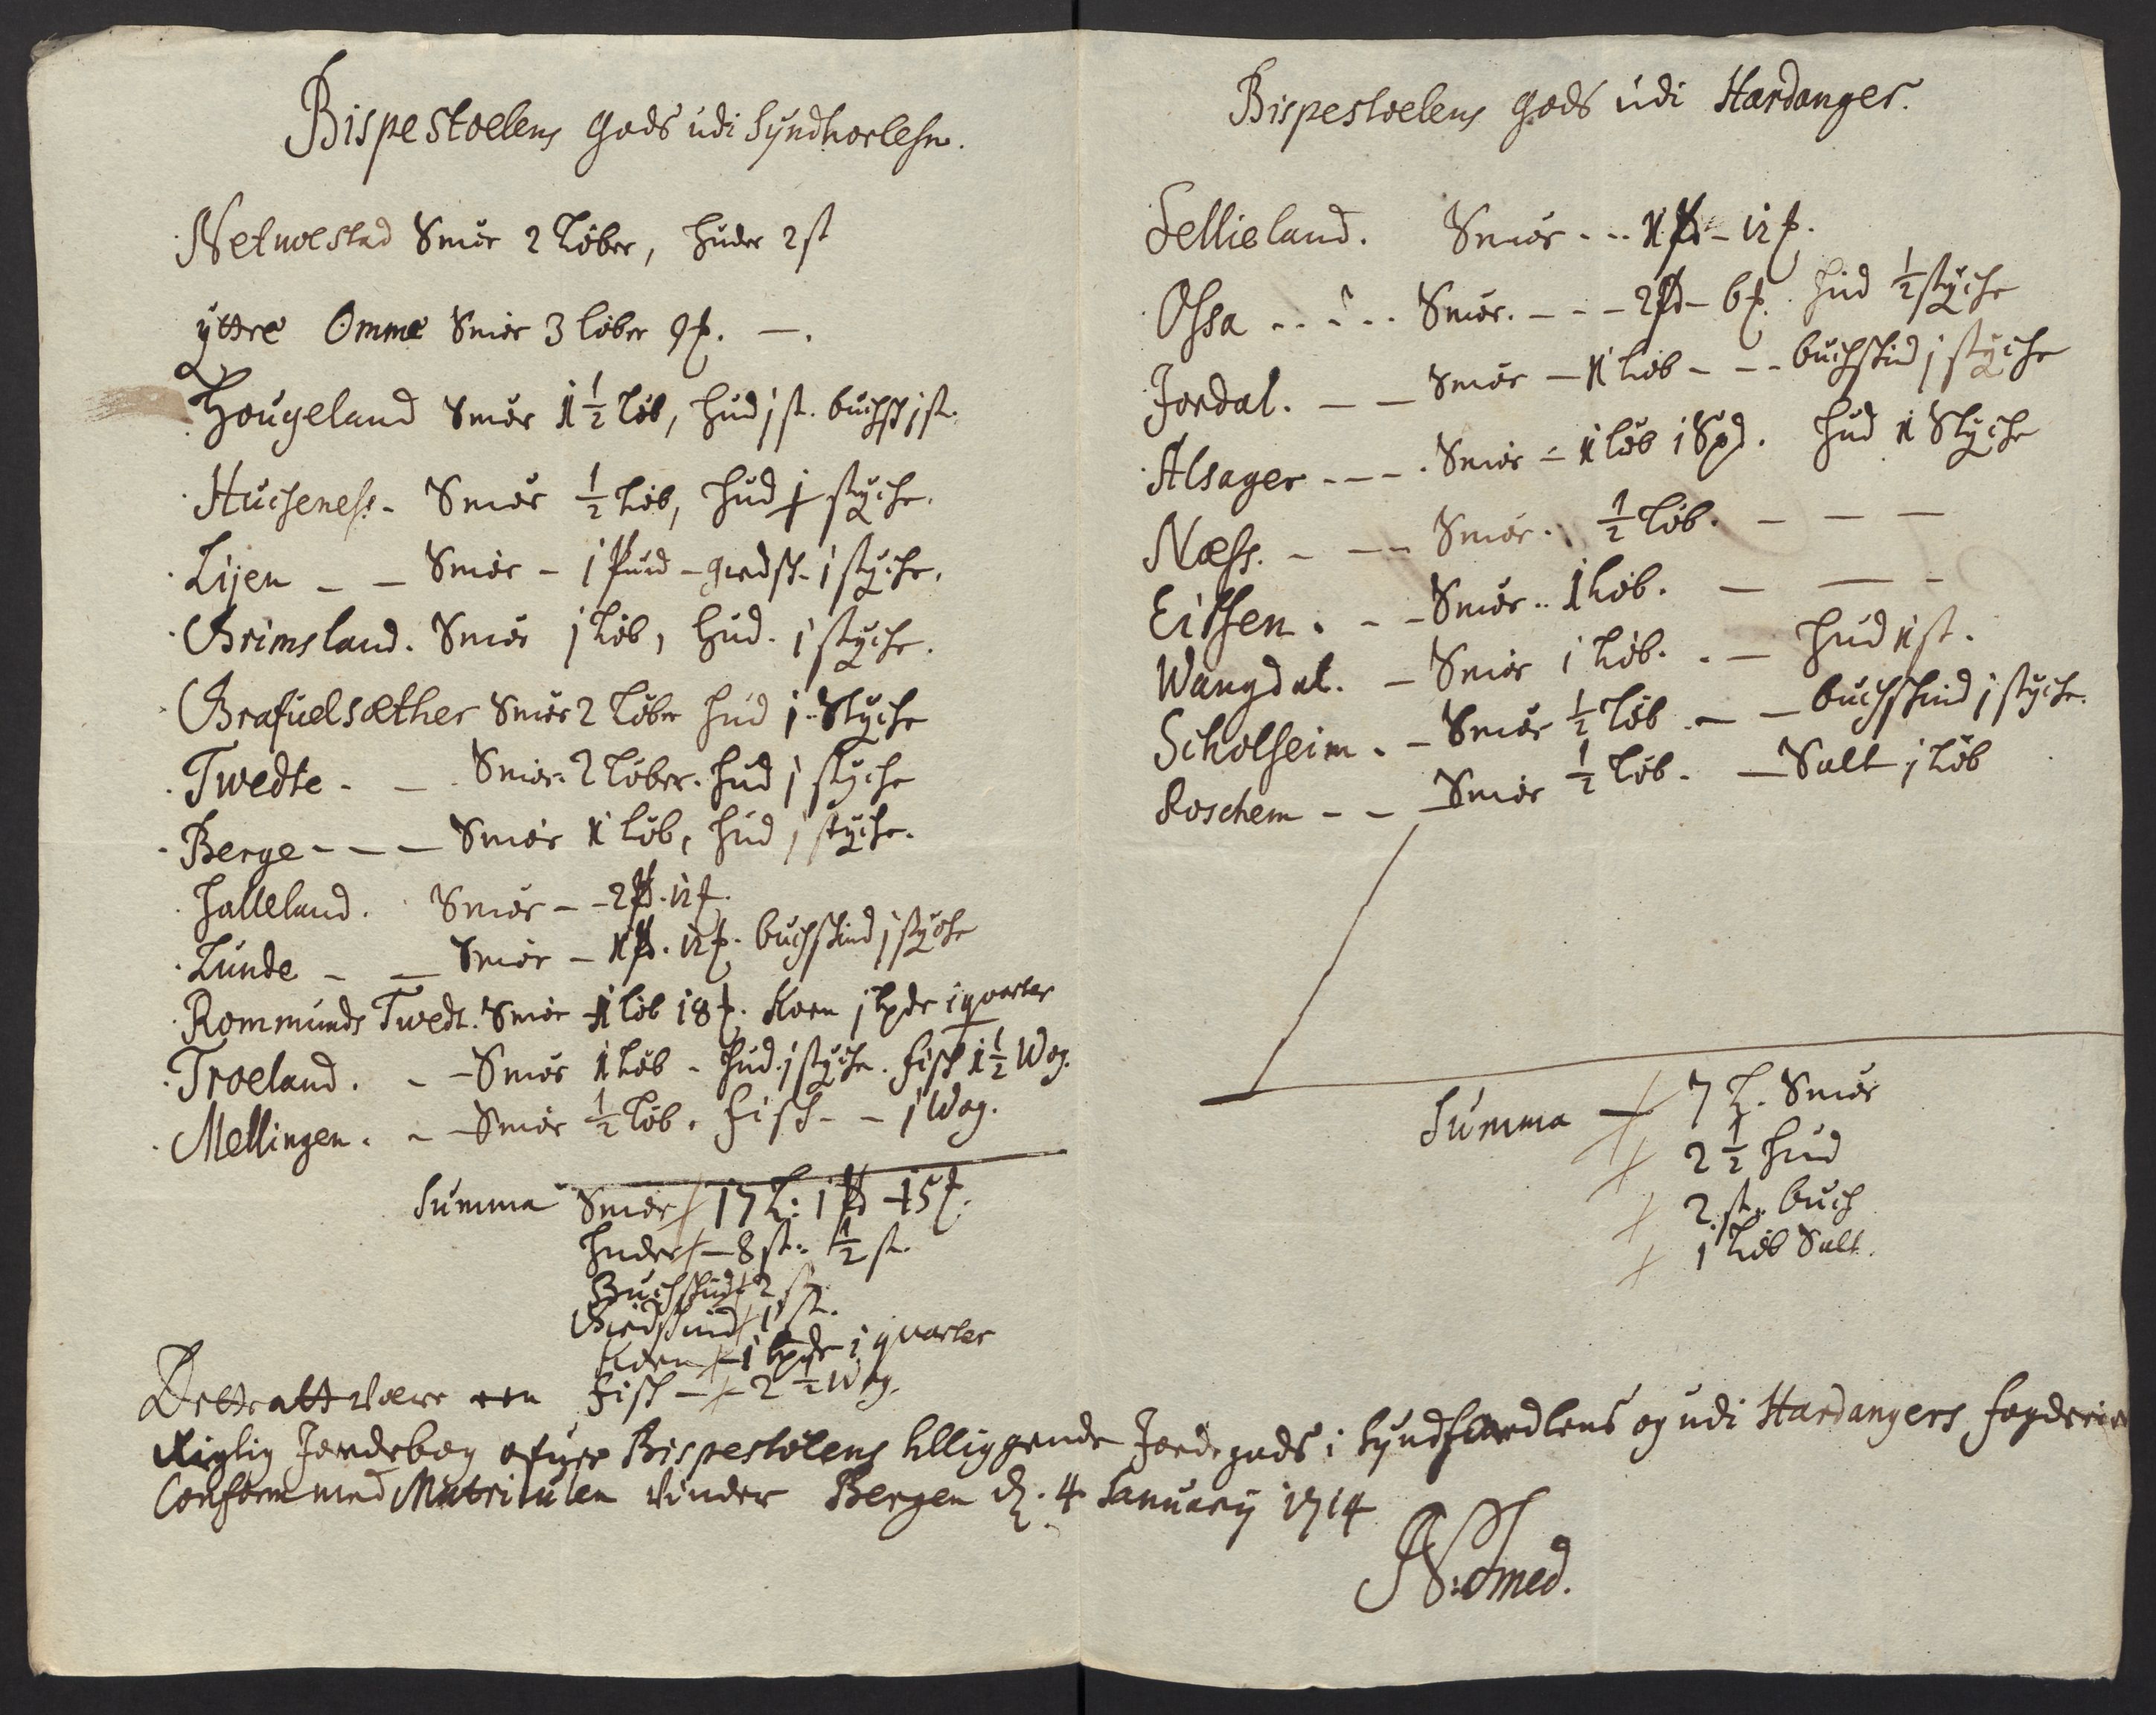 Bispestoelens gods udi Syndhorlehn.
Nelwestad Smör 2 Löber, huder 2 st
yttre Omme Smör 3 löber 9 ℔. —.
Hougeland Smör 1 1/2 Löb, hud j st. buchsk j st.
Huchenes. - Smör 1/2 Löb, hud j stÿche.
Lijen - - Smör - j Pund - giedsk. j stÿche.
Grimsland. Smör j Löb, hud. j stÿche.
Grafuelsæther Smör 2 Löber hud j. Stÿche
Twedte - - Smör. 2 Löber. hud j stÿche
Berge - - - Smör 1 Löb, hud j stÿche.
Halleland. Smör - - 2 Pd. 12 ℔.
Lunde - - Smör - 1 Pd. 12 ℔. buchskind j stÿche
Rommunds Twedt. Smör 1 löb 18 ℔. Korn j tpde i qvarter
Troeland. - - Smör 1 Löb - hud. j stÿche. fisk 1 1/2 Wog.
Mellingen. - - Smör 1/2 Löb. fisk - - j Wog.
Summa Smör 17 L: 1 Pd 15 ℔.
huder - 8 st. 1/2 st.
Buchskind 2 st.
Giedskind 1 st.
Korn - 1 tpde i qvarter
fisk - 2 1/2 Wog.
Bispestoelens gods udi Hardanger.
Sellieland. Smör - - - 1 Pd - 12 ℔.
Ossa - - - - Smör. - - - 2 Pd - 6 ℔. hud 1/2 stÿche
Jordal. - - Smör - 1 Löb - - - buchskind j stÿche
Alsager - - - . Smör - 1 löb 1 Spd. hud 1 Stÿche
Næss. - - - Smör. 1/2 Löb. - - -
Eithen. - - Smör.. 1 Löb. - - -
Wangdal. - Smör 1 Löb. . - hud 1 st.
Scholheim. - Smör 1/2 Löb - - buchskind j stÿche.
Roschem - - Smör 1/2 Löb. - Salt j Löb
Summa - 7 L. Smör
2 1/2 hud
2. st. buch
1 Löb Salt.
Dette att være een
Rigtig Jordebog ofuer Bispestolens tilliggende Jordegods i Syndhordlens og udi Hardangers fogderier
Conform med Matriculen vinder Bergen d. 4 January 1714